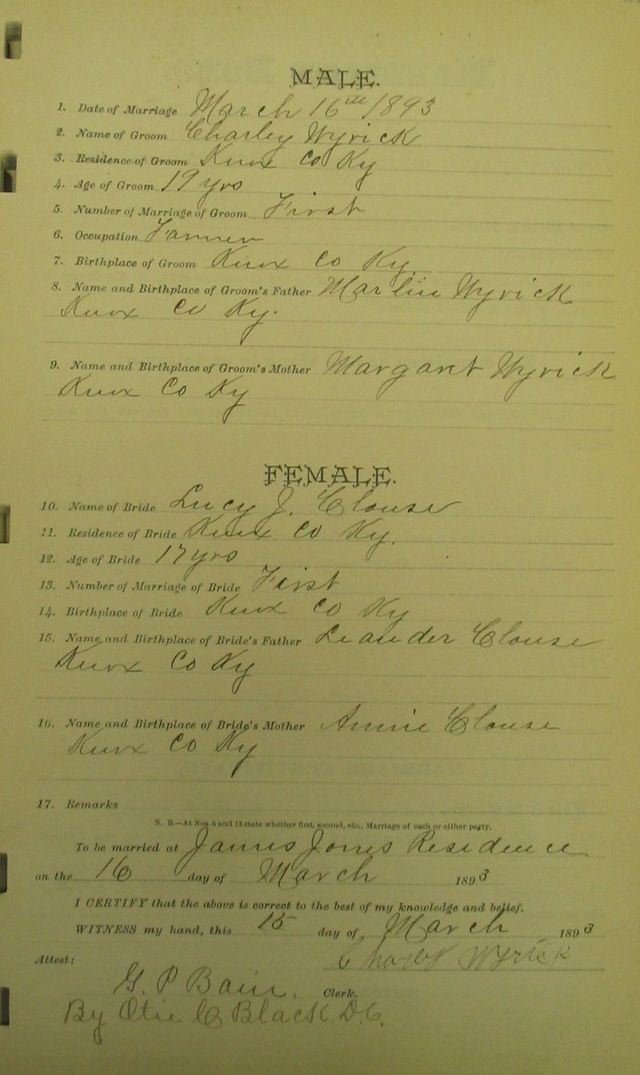 MALE.
1. Date of Marriage March 16th 1893
2. Name of Groom Charley Wyrick
3. Residence of Groom Knox Co Ky
4. Age of Groom 19 yrs
5. Number of Marriage of Groom First
6. Occupation Farmer
7. Birthplace of Groom Knox Co Ky
8. Name and Birthplace of Groom's Father Wyrick
Knox Co Ky.
9. Name and Birthplace of Groom's Mother Margaret Wyrick
Knox Co Ky
FEMALE.
10. Name of Bride Lucy J. Clouse
11. Residence of Bride Knox Co Ky.
12. Age of Bride 17 yrs
13. Number of Marriage of Bride First
14. Birthplace of Bride Knox Co Ky
15. Name and Birthplace of Bride's Father Leander Clouse
Knox Co Ky
16. Name and Birthplace of Bride's Mother Annie Clouse
Knox Co Ky
17. Remarks
N. B.—At Nos. 5 and 13 state whether first, second, etc., Marriage of each or either party.
To be married at James Jones Residence
on the 16 day of March 1893
I CERTIFY that the above is correct to the best of my knowledge and belief.
WITNESS my hand, this 15 day of March 1893
Wyrick
Attest:
G. P. Bain. Clerk.
By Otie C Black D.C.